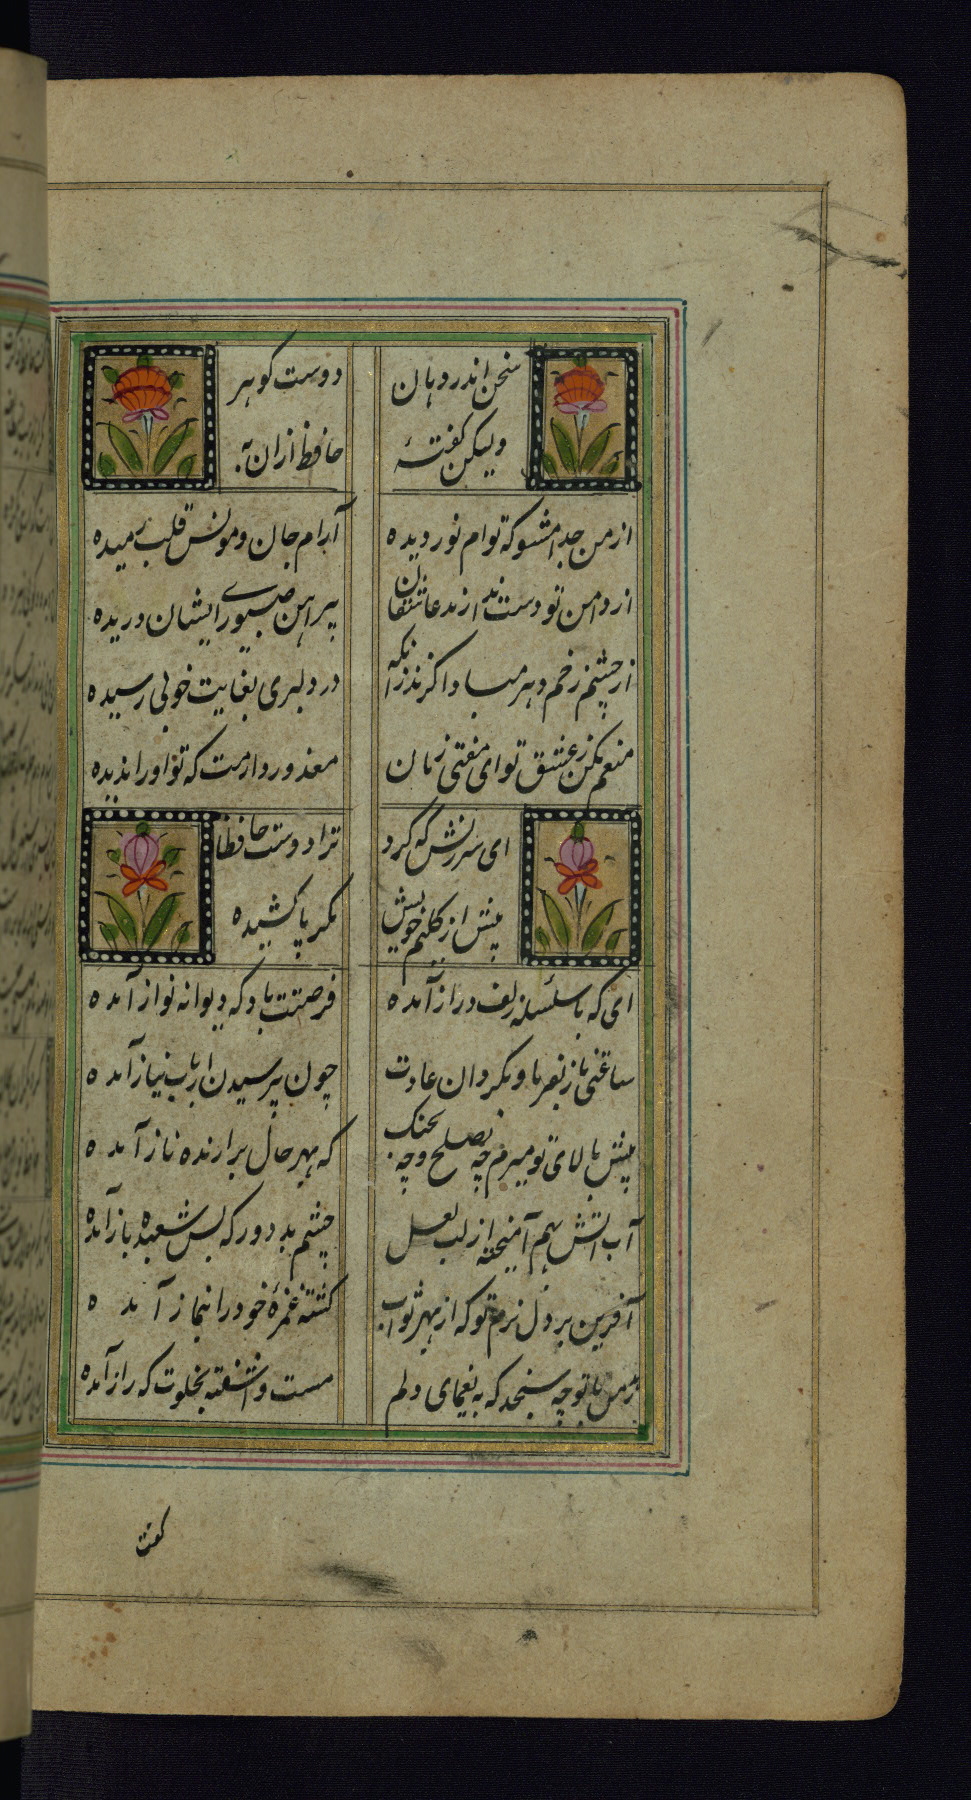 سخن اندر دهان دوست کوهر
ولیکن کفتهٔ حافظ ازان به
از من جدا مشو که توام نور دیده آرام جان و مونس قلب رمیده
از دامن تو دست ندارند عاشقان پیراهن صبوری ایشان دریده
از چشم زخم دهر مبادا کزند زانکه در دلبری بغایت خوبی رسیده
منعم مکن ز عشق تو ای مفتی زمان معذور دارمت که تو او را ندیده
ای سرزنش که کرد ترا دوست حافظا
بیش از کلیم خویش مکر پا کشیده
ای که با سلسله زلف دراز آمده فرصتت باد که دیوانه نواز آمده
ساعتی ناز بفرما و بکردان عادت چون بپرسیدن ارباب نیاز آمده
پیش بالای تو میرم چه بصلح و چه بجنک که بهر حال برازنده ناز آمده
آب و آتش بهم آمیخته از لب لعل چشم بد دور که بس شعبده باز آمده
آفرین بر دل نرم تو که از بهر ثواب کشته غمزهٔ خود را بنماز آمده
زهد من با تو چه سنجد که به یغمای دلم مست و آشفته بخلوت که راز آمده
کفت